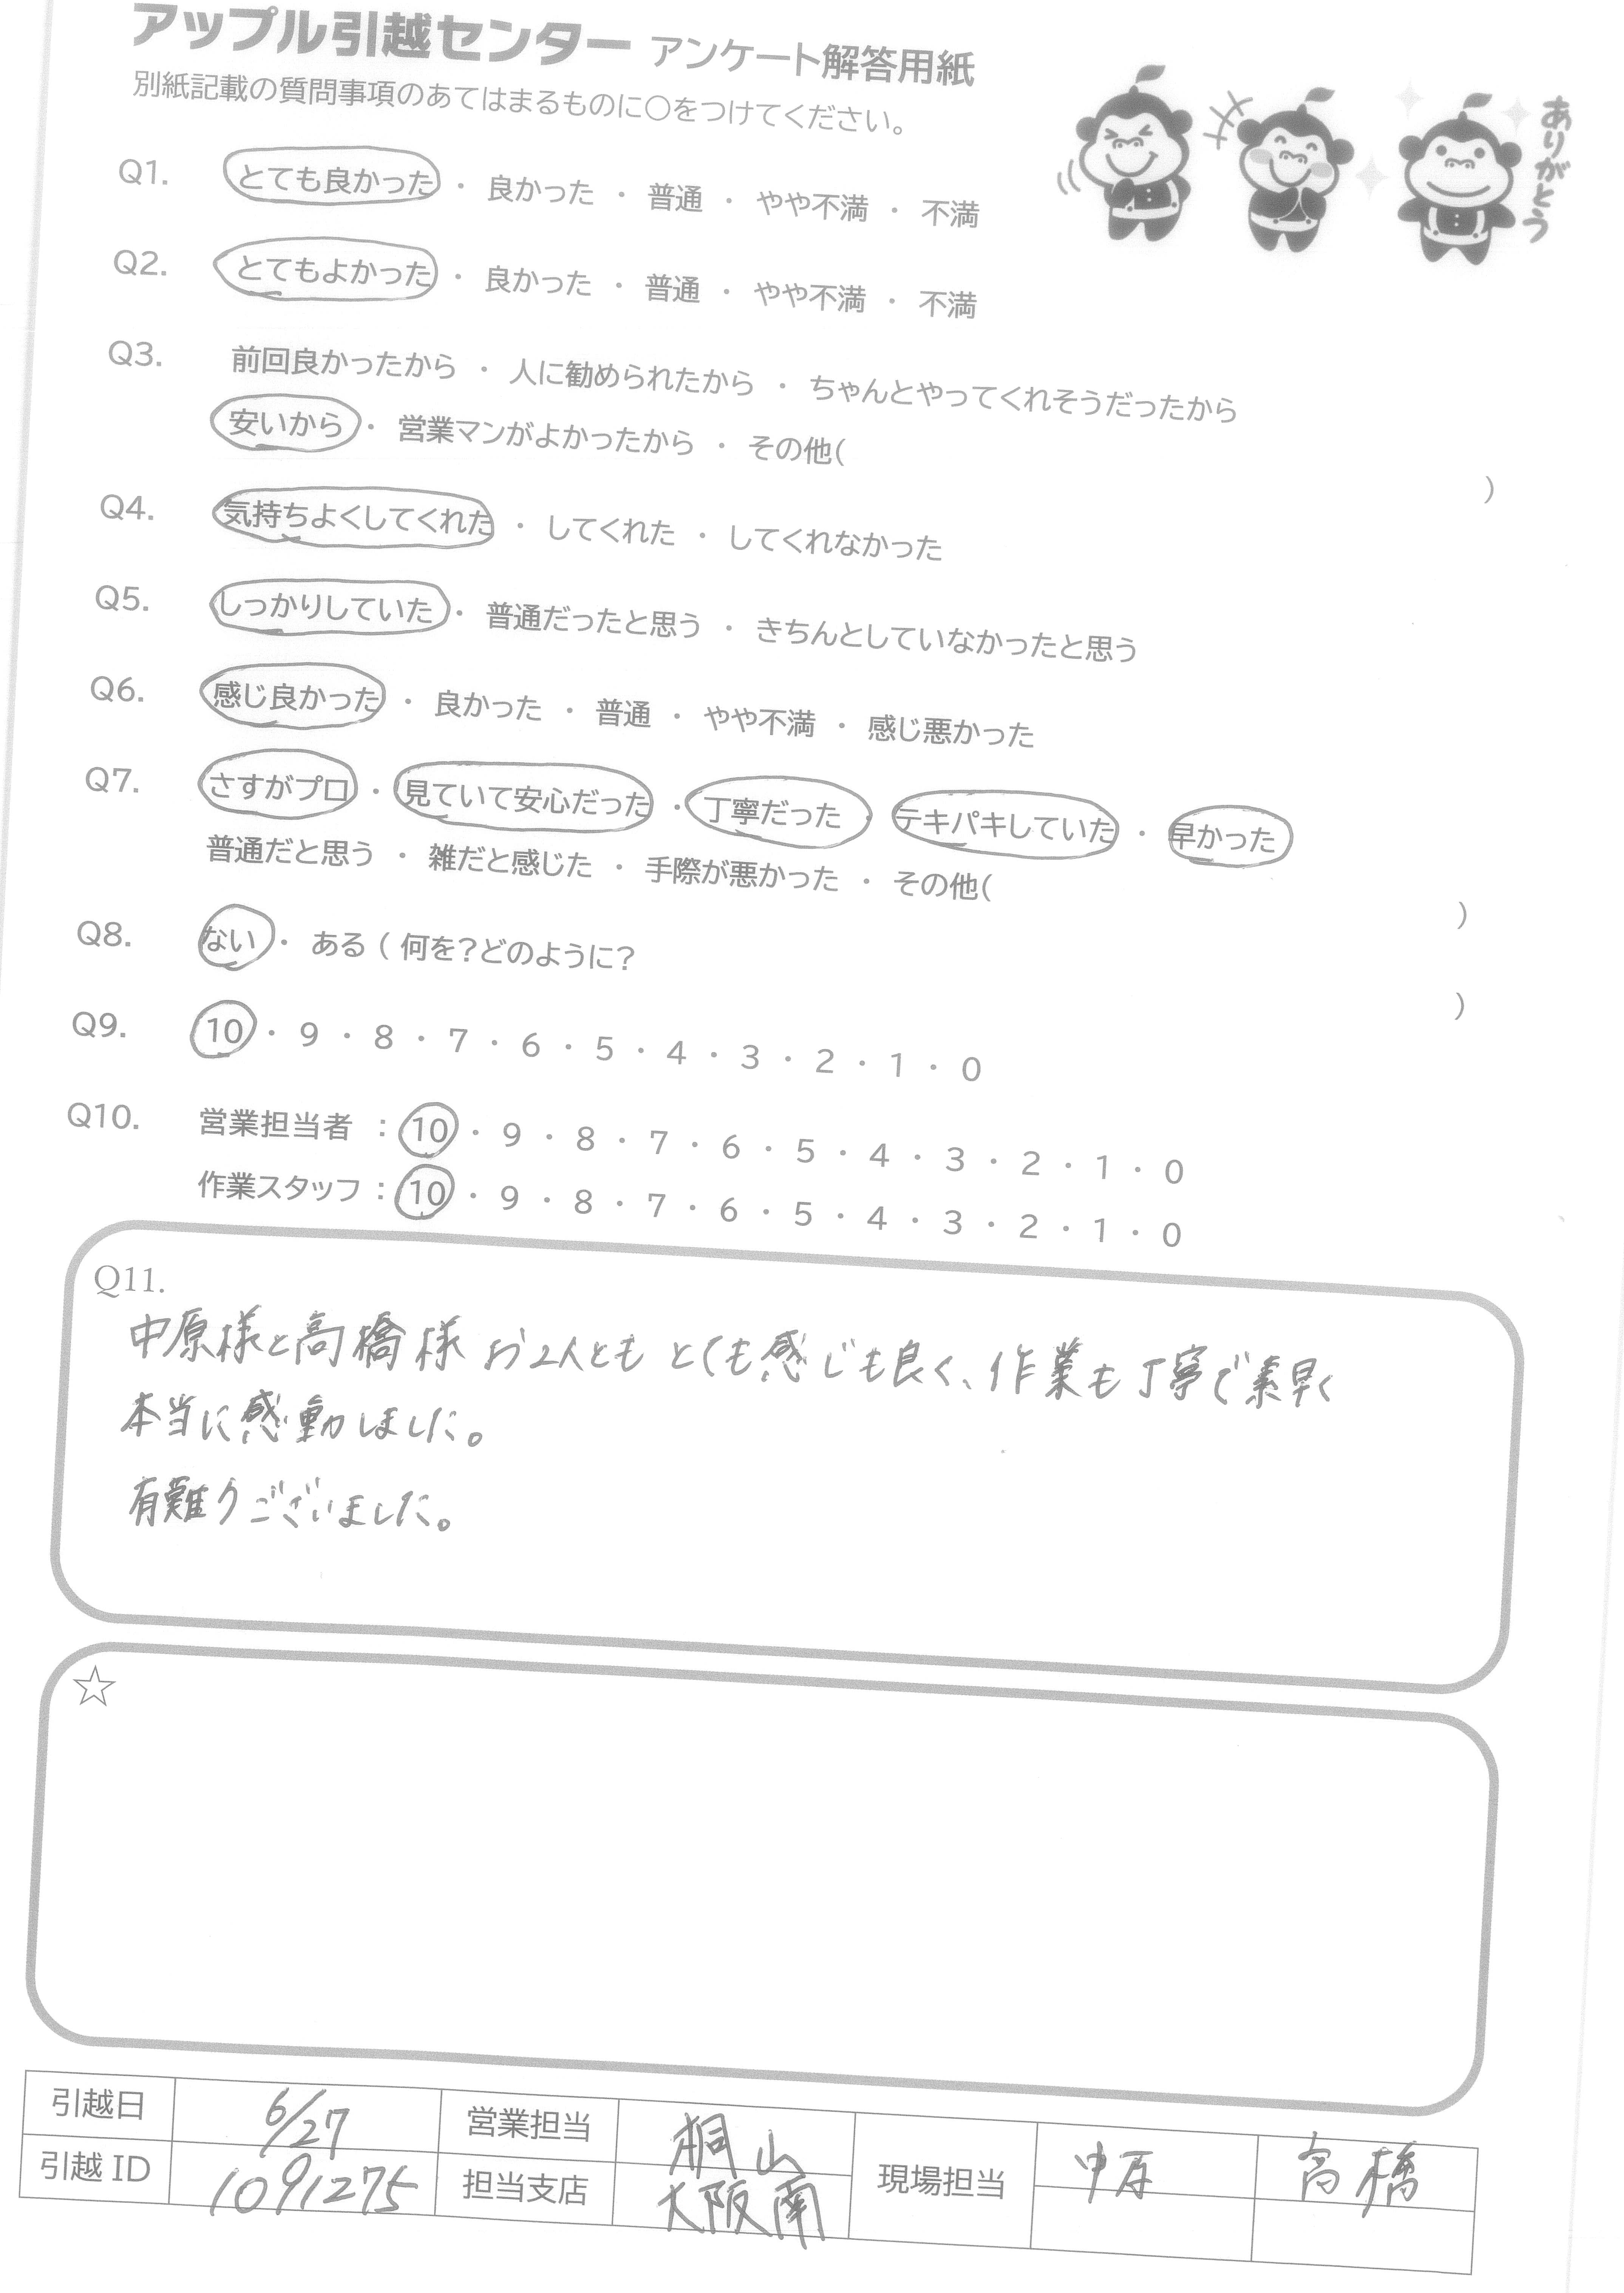 アップル引越センター アンケート解答用紙
別紙記載の質問事項のあてはまるものに○をつけてください。
ありがとう
Q1. とても良かった ・ 良かった ・ 普通 ・ やや不満 ・ 不満
Q2. とてもよかった ・ 良かった ・ 普通 ・ やや不満 ・ 不満
Q3. 前回良かったから ・ 人に勧められたから ・ ちゃんとやってくれそうだったから
安いから ・ 営業マンがよかったから ・ その他( )
Q4. 気持ちよくしてくれた ・ してくれた ・ してくれなかった
Q5. しっかりしていた ・ 普通だったと思う ・ きちんとしていなかったと思う
Q6. 感じ良かった ・ 良かった ・ 普通 ・ やや不満 ・ 感じ悪かった
Q7. さすがプロ ・ 見ていて安心だった ・ 丁寧だった ・ テキパキしていた ・ 早かった
普通だと思う ・ 雑だと感じた ・ 手際が悪かった ・ その他( )
Q8. ない ・ ある ( 何を?どのように? )
Q9. 10 ・ 9 ・ 8 ・ 7 ・ 6 ・ 5 ・ 4 ・ 3 ・ 2 ・ 1 ・ 0
Q10. 営業担当者 : 10 ・ 9 ・ 8 ・ 7 ・ 6 ・ 5 ・ 4 ・ 3 ・ 2 ・ 1 ・ 0
作業スタッフ : 10 ・ 9 ・ 8 ・ 7 ・ 6 ・ 5 ・ 4 ・ 3 ・ 2 ・ 1 ・ 0
Q11.
中原様と高橋様 お2人とも とても感じも良く、作業も丁寧で素早く
本当に感動しました。
有難うございました。
☆
引越日 6/27 営業担当 桐山 現場担当 中原 高橋
引越 ID 1091275 担当支店 大阪南